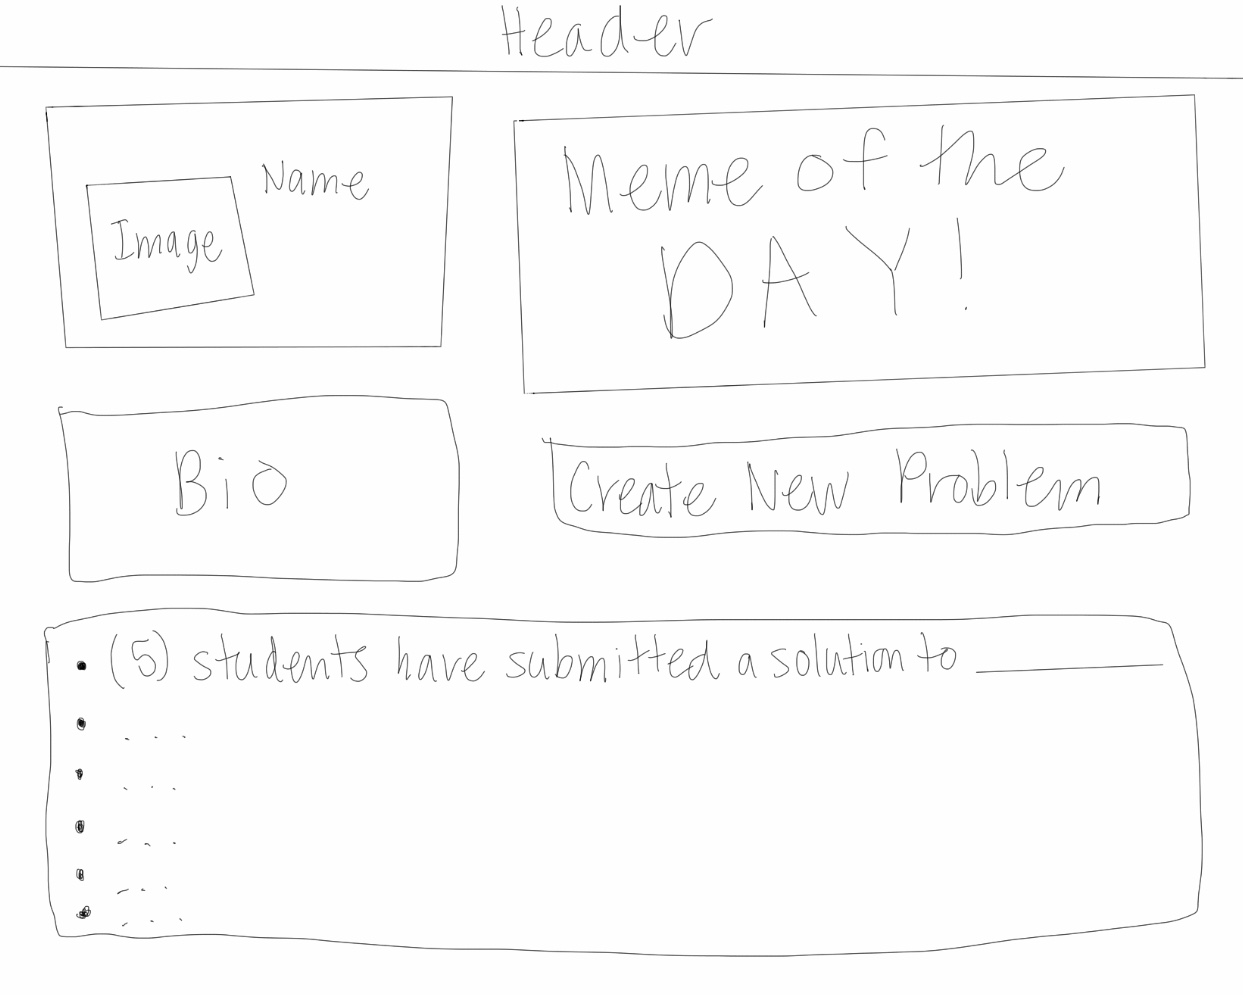 Header
Name
Image
Meme of the
DAY!
Bio
Create New Problem
• (5) students have submitted a solution to ______
• ...
• ...
• ...
• ...
• ...